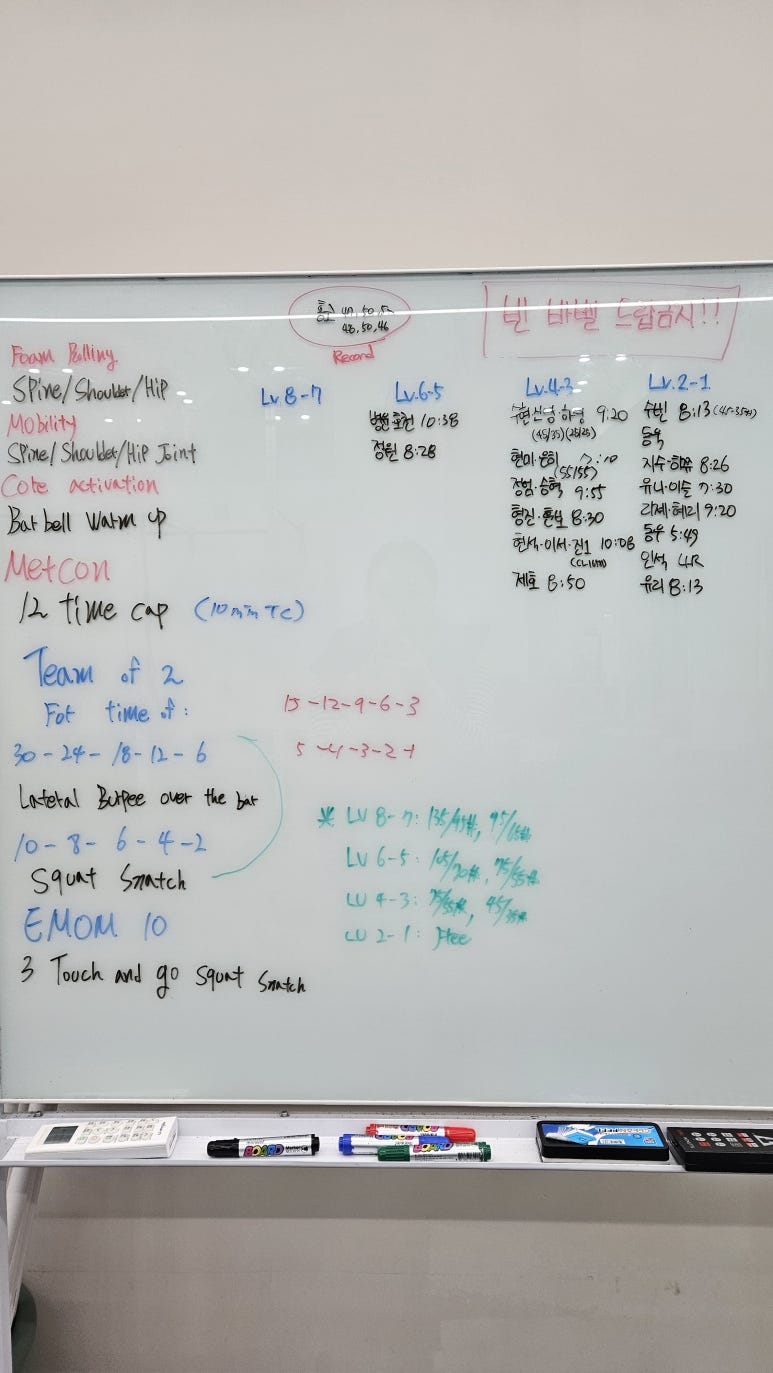 48, 50, 46
Record
빈 바벨 드랍금지!!
Foam Rolling
Spine/Shoulder/Hip
Mobility
Spine/Shoulder/Hip Joint
Core activation
Barbell warm up
Metcon
12 time cap (10min TC)
Team of 2
For time of:
30-24-18-12-6
Lateral Burpee over the bar
10-8-6-4-2
Squat Snatch
EMOM 10
3 Touch and go Squat Snatch
15-12-9-6-3
5-4-3-2-1
* LV 8-7: 135/95#, 95/65#
LV 6-5: 105/70#, 75/55#
LV 4-3: 75/55#, 45/35#
LV 2-1: Free
Lv.8-7
Lv.6-5
10:38
정원 8:28
Lv.4-3
하영 9:20
(45/35)(25/25)
현미·은희
(55/55)
정범·승혁 9:55
형진· 8:30
현석·이서·진1 10:08
제호 8:50
Lv.2-1
수빈 8:13
동욱
지수· 8:26
유니·이슬 7:30
혜리 9:20
동우 5:49
인석 4R
유리 8:13